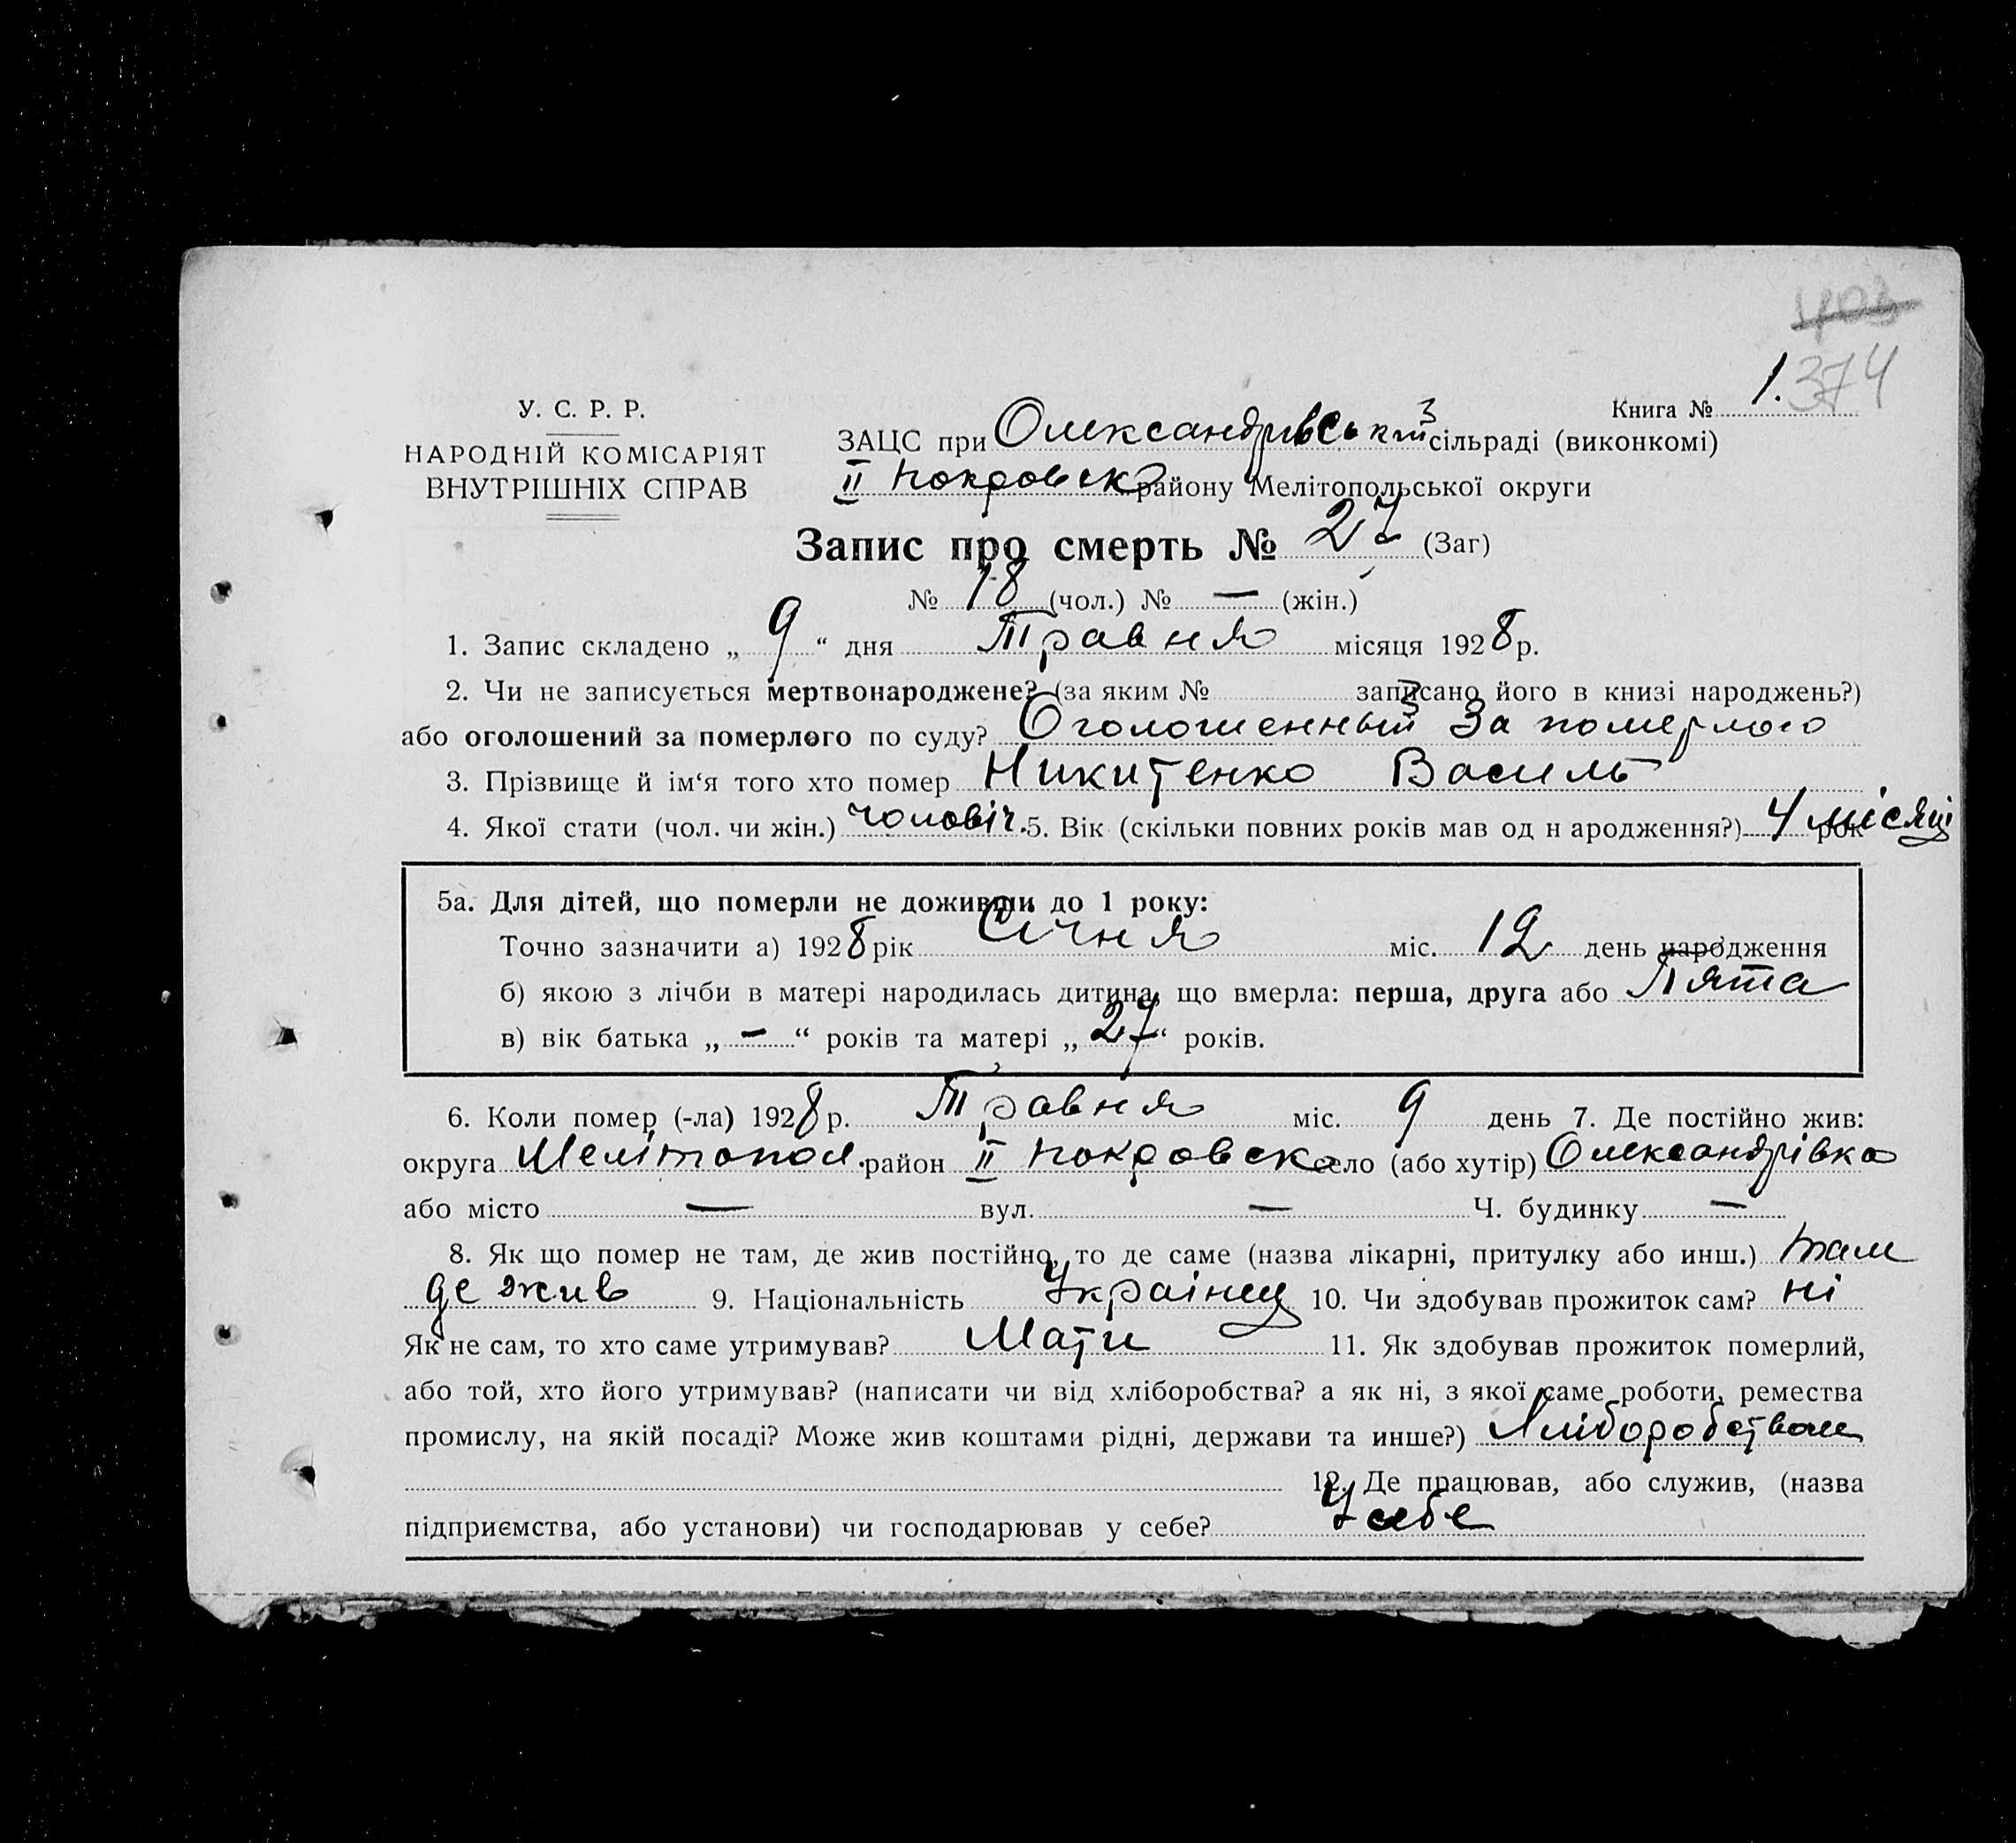 403
374
У. С. Р. Р.
НАРОДНІЙ КОМІСАРІЯТ
ВНУТРІШНІХ СПРАВ
Книга № 1.
ЗАЦС при Олександрівській сільраді (виконкомі)
II Покровск району Мелітопольської округи
Запис про смерть № 27 (Заг)
№ 18 (чол.) № — (жін.)
1. Запис складено „ 9 “ дня Травня місяця 1928 р.
2. Чи не записується мертвонароджене? (за яким № записано його в книзі народжень?)
або оголошений за померлого по суду? Оголошенный За померлого
3. Прізвище й ім‘я того хто помер Никитенко Василь
4. Якої стати (чол. чи жін.) чоловіч. 5. Вік (скільки повних років мав од н ародження?) 4 місяці рок
5а. Для дітей, що померли не доживши до 1 року:
Точно зазначити а) 1928 рік Січня міс. 12 день народження
б) якою з лічби в матері народилась дитина, що вмерла: перша, друга або Пята
в) вік батька „ — “ років та матері „ 27 “ років.
6. Коли помер (-ла) 1928 р. Травня міс. 9 день 7. Де постійно жив:
округа Мелітопол. район II Покровск село (або хутір) Олександрівка
або місто — вул. — Ч. будинку —
8. Як що помер не там, де жив постійно, то де саме (назва лікарні, притулку або инш.) там
де жив 9. Національність Українец 10. Чи здобував прожиток сам? ні
Як не сам, то хто саме утримував? Мати 11. Як здобував прожиток померлий,
або той, хто його утримував? (написати чи від хліборобства? а як ні, з якої саме роботи, ремества
промислу, на якій посаді? Може жив коштами рідні, держави та инше?) Хліборобством
12. Де працював, або служив, (назва
підприємства, або установи) чи господарював у себе? У себе